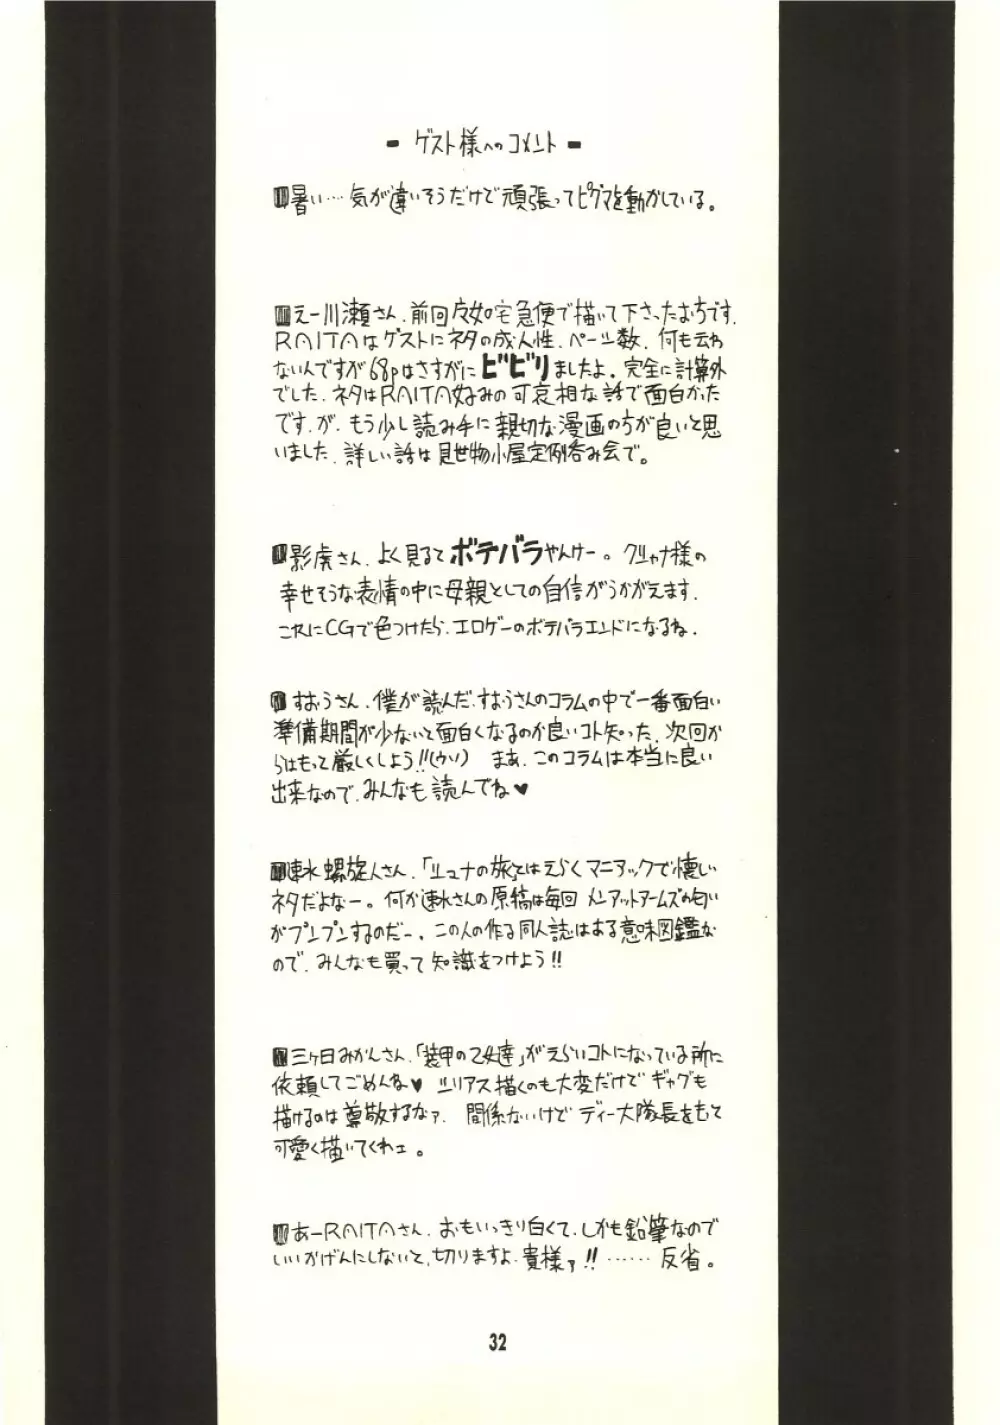 - ゲスト様へのコメント -
暑い…気が違いそうだけで頑張ってピグマを動かしている。
えー川瀬さん、前回は宅急便で描いて下さったようです。
RAITAはゲストにネタの成人性、ページ数、何も云わ
ないんですが68pはさすがにビビりましたよ。完全に計算外
でした。ネタはRAITA好みの可哀相な話で面白かった
ですが、もう少し読み手に親切な漫画の方が良いと思
いました。詳しい話は見世物小屋定例呑み会で。
影虎さん、よく見るてボテバラやんけー。クリャナ様の
幸せそうな表情の中に母親としての自信がうかがえます。
これにCGで色つけたら、エロゲーのボテバラエンドになるね。
すおうさん、僕が読んだ、すおうさんのコラムの中で一番面白い
準備期間が少ないと面白くなるのが良いコト知った、次回か
らはもって厳しくしよう!!(ウソ) まあ、このコラムは本当に良い
出来なので、みんなも読んでね♥
速水螺旋人さん、「リュナの旅」とはえらくマニアックで懐しい
ネタだよなー。何か速水さんの原稿は毎回メンアットアームズの匂い
がプンプンするのだー、この人の作る同人誌はある意味図鑑な
ので、みんなも買って知識をつけよう!!
三ヶ日みかんさん、「装甲の乙女達」がえらいコトになっている所に
依頼してごめんね♥ ユリアス描くのも大変だけでギャグも
描けるのは尊敬するなァ。関係ないけでディー大隊長をもて
可愛く描いてくれェ。
あーRAITAさん、おもいっきり白くて、しかも鉛筆なので
いいかげんにしないと、切りますよ、貴様ァ!!……反省。
32